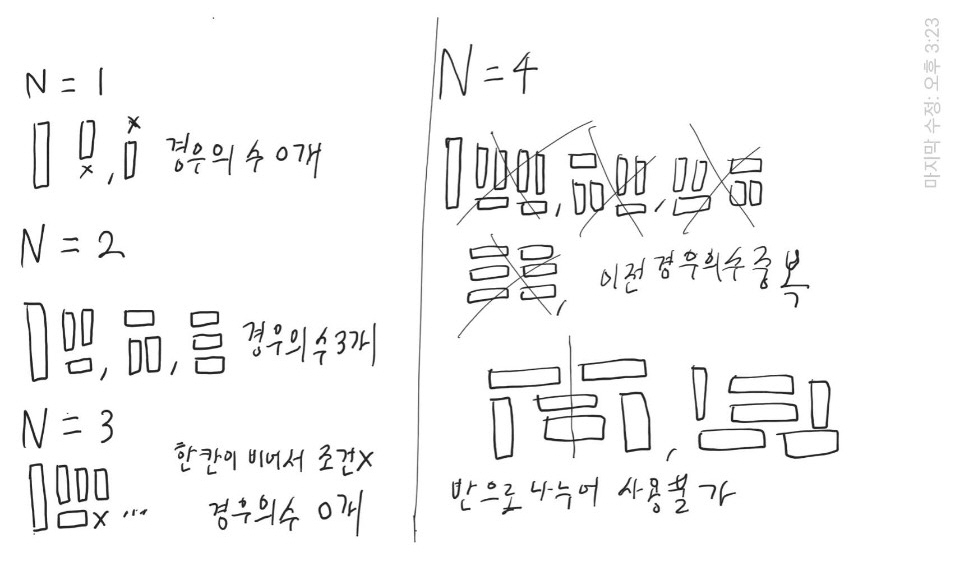 N = 1
x
x , 경우의 수 0개
N = 2
, , 경우의수 3개
N = 3
한칸이 비어서 조건x
x ... 경우의수 0개
N = 4
, ,
, 이전 경우의수 중복
,
반으로 나누어 사용불가
마지막 수정: 오후 3:23